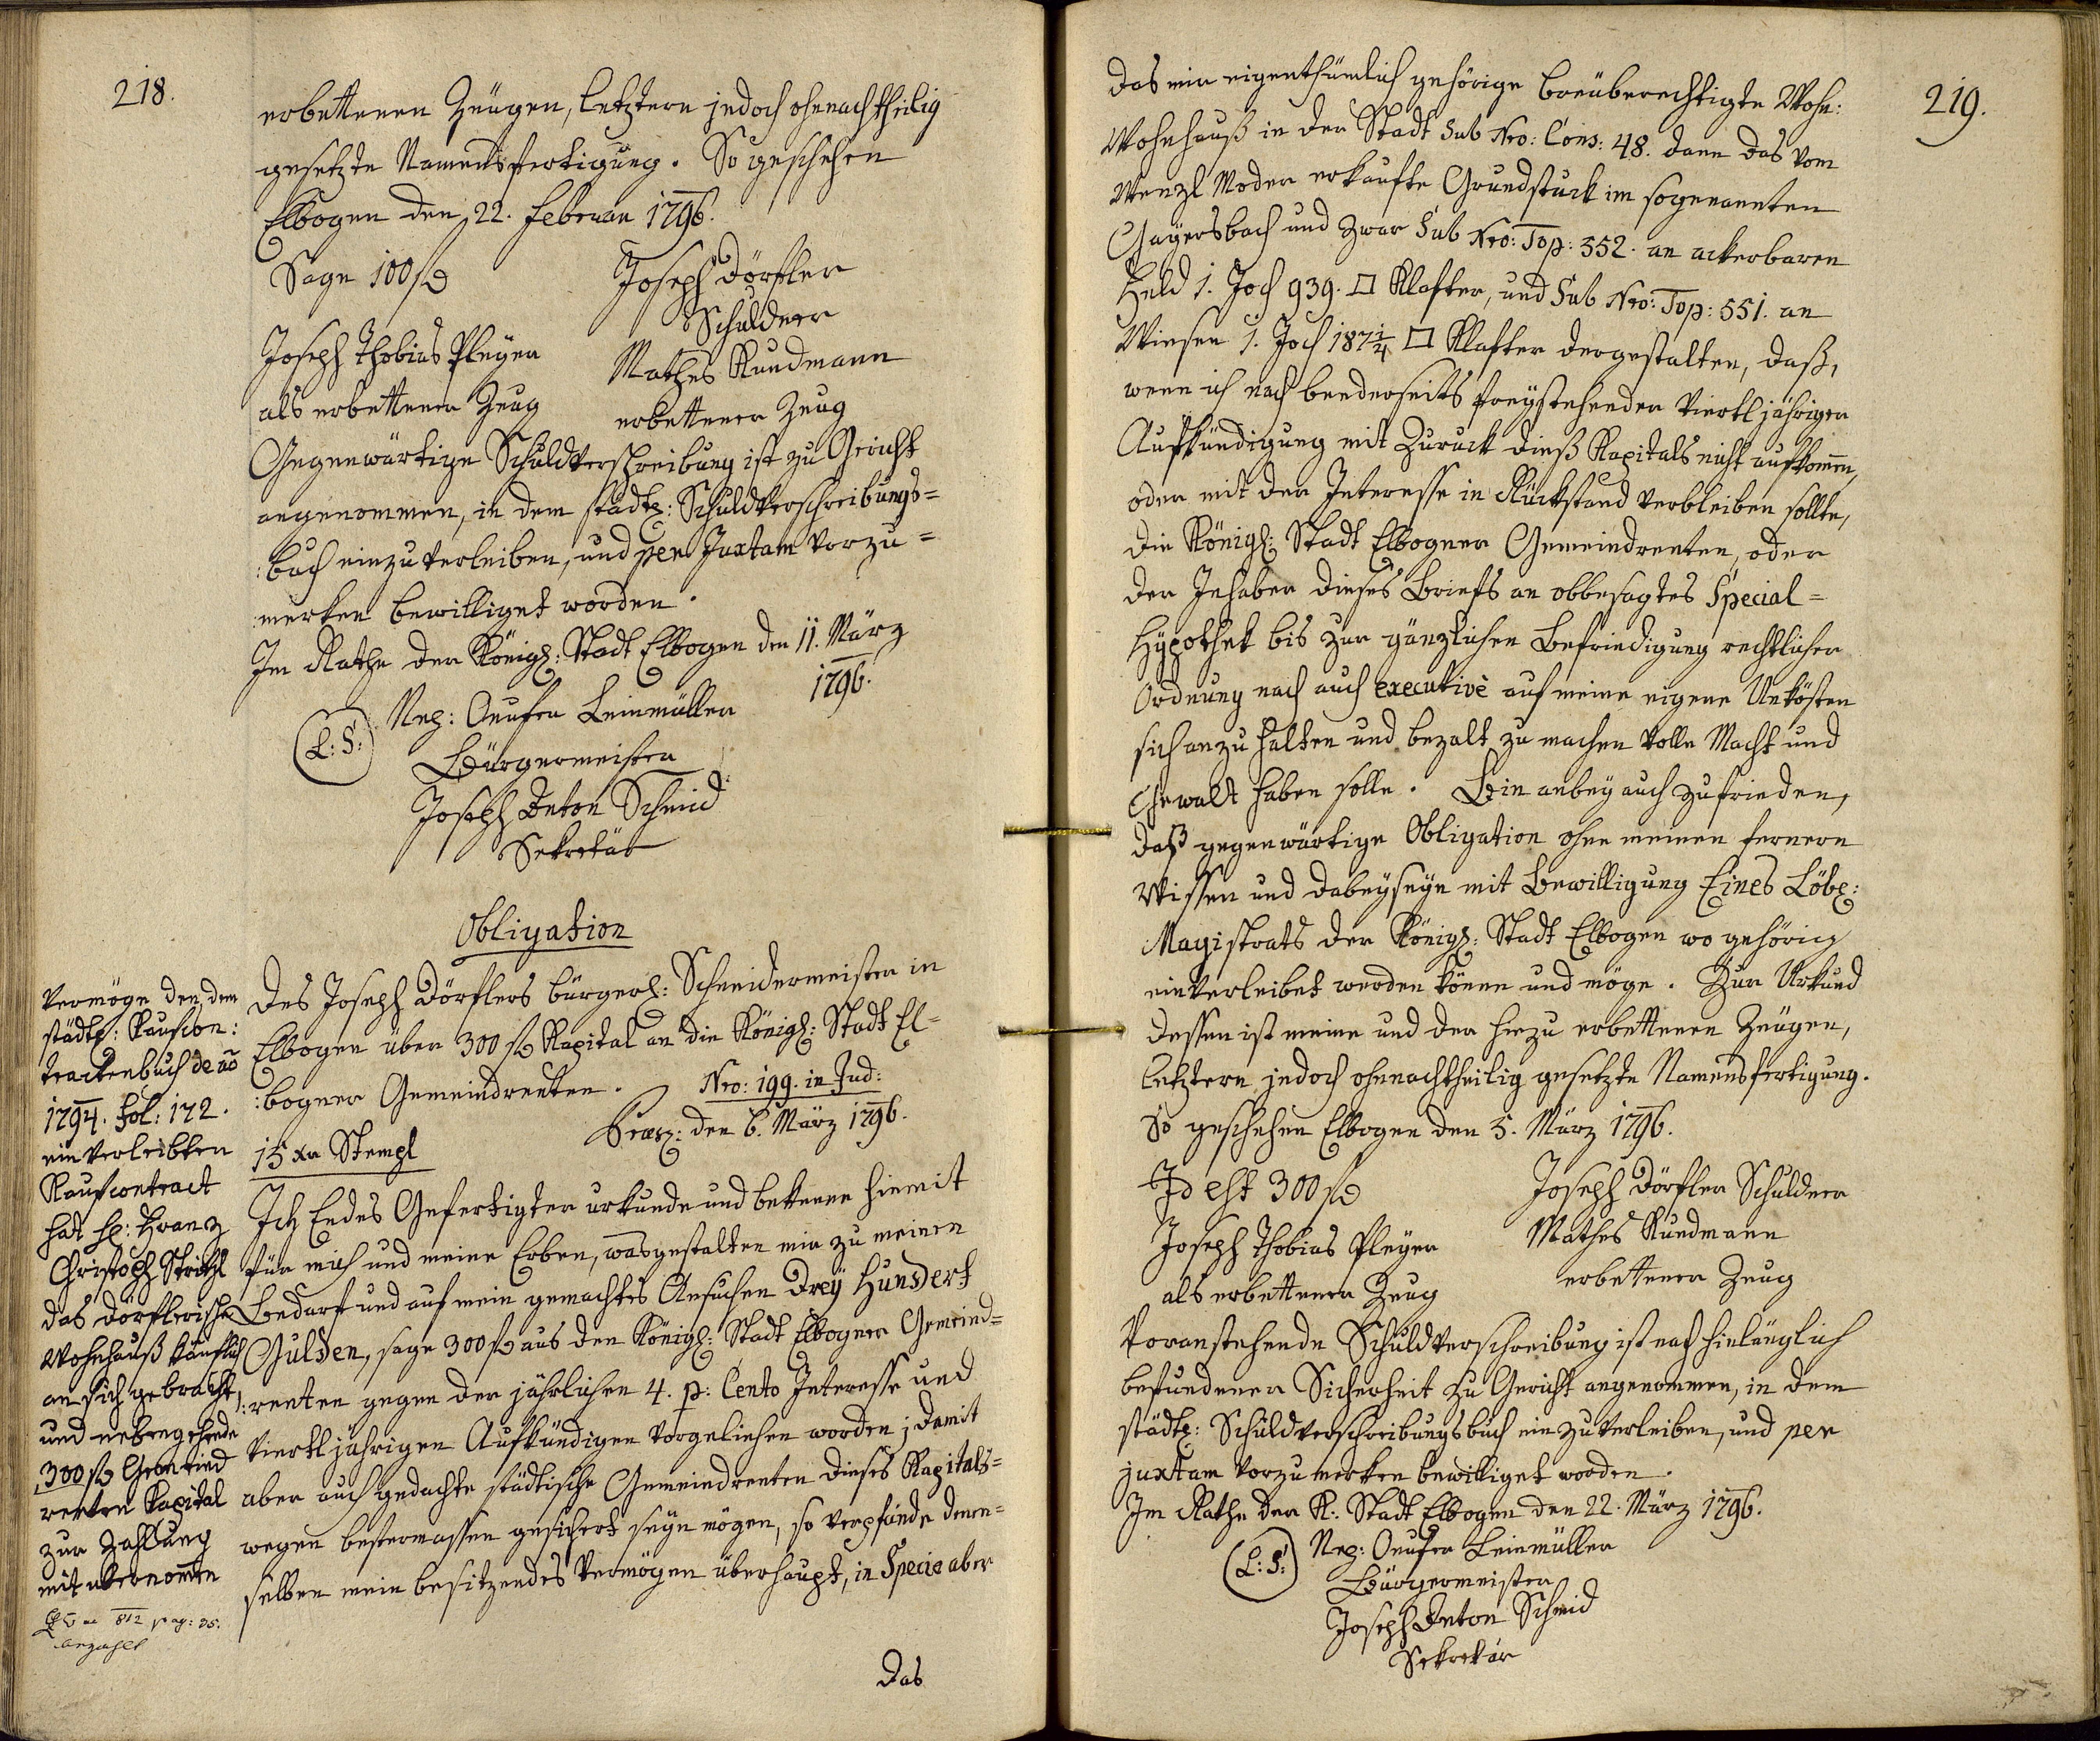 218.
erbettenen Zeügen, letztern jedoch ohnnachtheilig
gesetzte Namensfertigung. So geschehen
Elbogen den 22. Februar 1796.
Sage 100 f
Joseph Dörfler
Schuldner
Joseph Thobias Pleyer
als erbettener Zeug
Mathes Rundmann
erbettener Zeug
Gegenwärtige Schuldverschreibung ist zu Gericht
angenommen, in dem städt: Schuldverschreibungs=
:buch einzuverleiben, und per Juxtam vorzu=
:merken bewilliget worden.
Im Rathe der Königl: Stadt Elbogen den 11. März
1796.
(L: S:) Nep: Leinmüller
Bürgermeister
Joseph Anton Schmid
Sekretär
Obligation
Des Joseph Dörflers bürgerl: Schneidermeister in
Elbogen über 300 f Kapital an die Königl: Stadt El=
:bogner Gemeindrenten. Nro: 199. in Jud:
Præs: den 6. März 1796.
15 xr Stempl
Ich Endes Gefertigter urkunde und bekenne hiemit
für mich und meine Erben, wasgestalten mir zu meinen
Bedarf und auf mein gemachtes Ansuchen Dreÿ Hundert
Gulden, sage 300 f aus den Königl: Stadt Elbogner Gemeind=
:renten gegen der jährlichen 4. p: Cento Interesse und
viertljährigen Aufkündigen vorgeliehen worden; damit
aber auch gedachte städtische Gemeindrenten dieses Kapitals=
wegen bestermassen gesichert seyn mögen, so verpfände denen=
selben mein besitzendes Vermögen überhaupt, in Specie aber
das
Vermöge den, dem
städt: Kaufcon:
tracktenbuch de ao
1794. fol: 172.
einverleibten
Kaufcontract
hat H: Franz
Christoph
das Dörflerische
Wohnhauß käuflich
an sich gebracht,
und nebengehende
300 f Gemeind
renten Kapital
zur Zahlung
mit übernomen
812 pag: 35.
bezahlt
219.
das mir eigenthümlich gehörige breuberechtigte Wohn:
Wohnhauß in der Stadt Sub Nro: Cons: 48. dann das vom
Wenzl Moder erkaufte Grundstuck im sogenannten
Gaÿersbach und zwar Sub Nro: Top: 552. an ackerbaren
Feld 1. Joch 939. □ Klafter, und Sub Nro: Top: 551. an
Wiesen 1. Joch 187 1/4 □ Klafter dergestalten, daß,
wenn ich nach beederseits freÿstehender viertljährigen
Aufkündigung mit Zuruck dieß Kapitals nicht aufkomen,
oder mit der Interesse in Rückstand verbleiben sollte,
die Königl: Stadt Elbogner Gemeindrenten, oder
der Inhaber dieses Briefs an obbesagtes Special=
Hÿpothek bis zur gänzlichen Befriedigung rechtlicher
Ordnung nach auch executivè auf meine eigene Unkösten
sich anzuhalten und bezalt zu machen volle Macht und
Gewalt haben solle. Bin anbeÿ auch zufrieden,
daß gegenwärtige Obligation ohne meinen fernern
Wissen und dabeÿseyn mit Bewilligung Eines Löbl:
Magistrats der Königl: Stadt Elbogen wo gehörig
einverleibet werden könne und möge. Zur Urkund
dessen ist meine und der hiezu erbettenen Zeügen,
letztern jedoch ohnnachtheilig gesetzte Namensfertigung.
So geschehen Elbogen den 5. März 1796.
Id est 300 f
Joseph Dörfler Schuldner
Joseph Thobias Pleyer
als erbettener Zeug
Mathes Rundmann
erbettener Zeug
Voranstehende Schuldverschreibung ist nach hinlänglich
befundener Sicherheit zu Gericht angenommen, in dem
städt: Schuldverschreibungsbuch einzuverleiben, und per
juxtam vorzumerken bewilliget worden.
Im Rathe der K: Stadt Elbogen den 22. März 1796.
(L: S:) Nep: Leinmüller
Bürgermeister
Joseph Anton Schmid
Sekretär